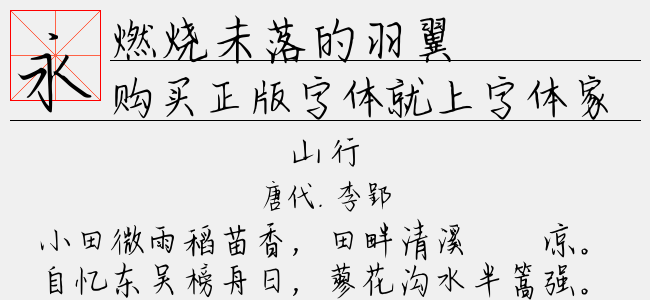 永
燃烧未落的羽翼
购买正版字体就上字体家
山行
唐代. 李郢
小田微雨稻苗香，田畔清溪　　凉。
自忆东吴榜舟日，蓼花沟水半篙强。